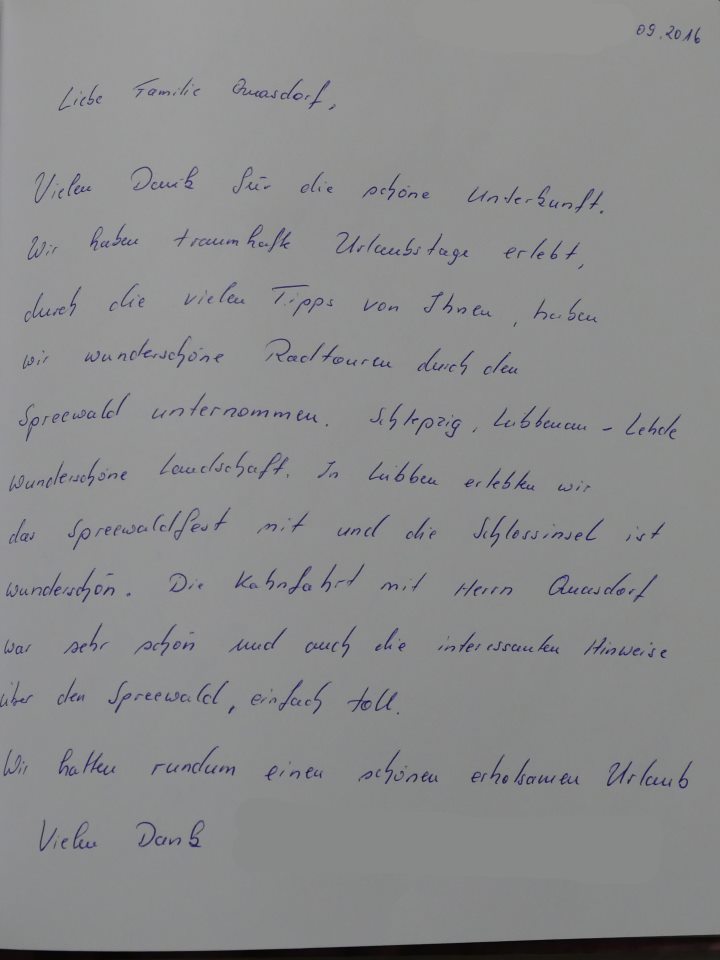 09.2016
Liebe Familie Quasdorf,
Vielen Dank für die schöne Unterkunft.
Wir haben traumhafte Urlaubstage erlebt,
durch die vielen Tipps von Ihnen, haben
wir wunderschöne Radtouren durch den
Spreewald unternommen. Schlepzig, Lübbenau - Lehde
wunderschöne Landschaft. In Lübben erlebten wir
das Spreewaldfest mit und die Schlossinsel ist
wunderschön. Die Kahnfahrt mit Herrn Quasdorf
war sehr schön und auch die interessanten Hinweise
über den Spreewald, einfach toll.
Wir hatten rundum einen schönen erholsamen Urlaub
Vielen Dank